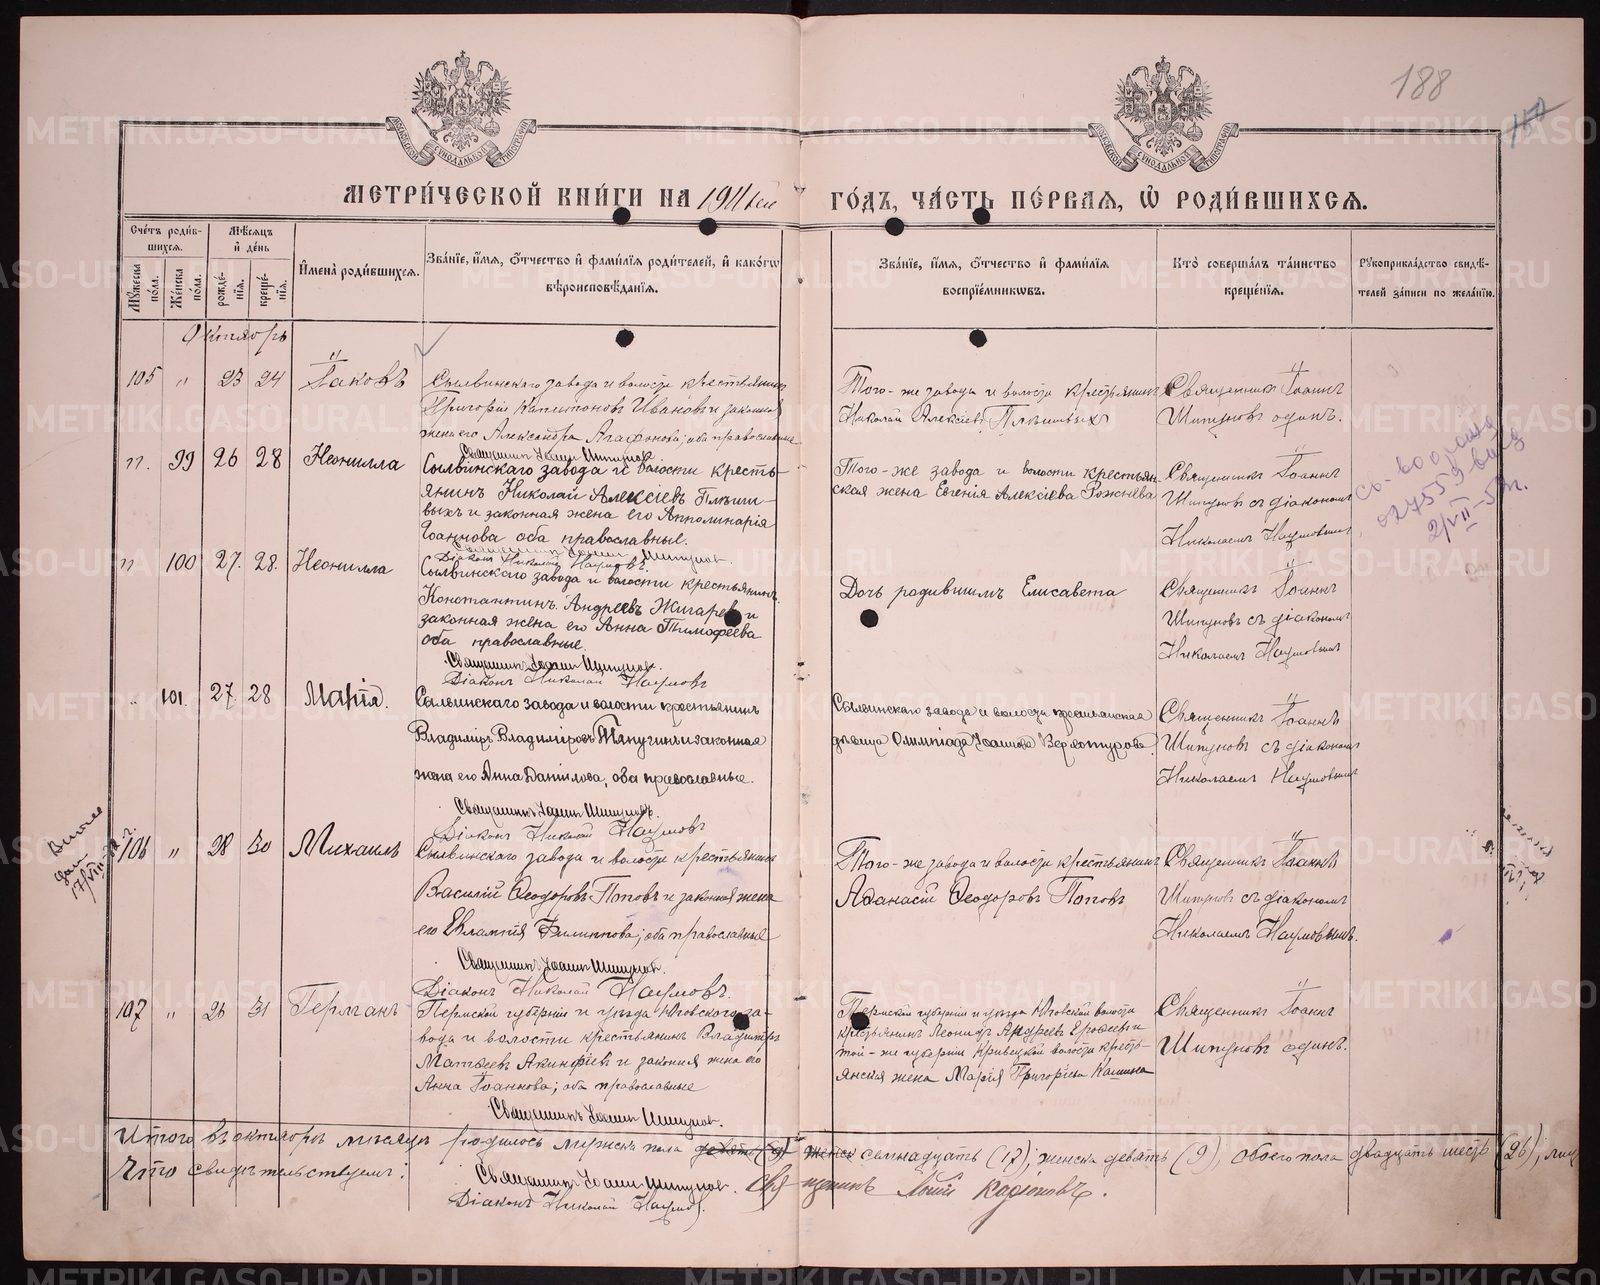 188
МЕТРИ́ЧЕСКОЙ КНИ́ГИ НА 1911 ГО́ДЪ, ЧА́СТЬ ПЕ́РВАЯ, Ѽ РОДИ́ВШИХСЯ.
МОСКОВСКОЙ СѴНОДАЛЬНОЙ ТИПОГРАФІИ
МОСКОВСКОЙ СѴНОДАЛЬНОЙ ТИПОГРАФІИ
Сче́тъ роди́в-
шихся.
Мѣ́сяцъ
и҆ де́нь
Му́жеска по́ла.
Же́нска по́ла.
рожде́-
нія.
креще́-
нія.
И҆мена̀ роди́вшихся.
Зва́нїе, и҆́мя, ѻ҆́тчество и҆ фами́лїя роди́телей, и҆ како́гѡ
вѣроисповѣ́данїя.
Зва́нїе, и҆́мя, ѻ҆́тчество и҆ фами́лїя
воспрїе́мникѡвъ.
Кто̀ соверша́лъ та́инство
креще́нїя.
Рꙋкоприкла́дство свидѣ́-
телей за́писи по жела́нїю.
Октябрь
105 " 23 24 Іаковъ
Сылвинскаго завода и волости крестьянинъ
Григорій Капитоновъ Ивановъ и законная
жена его Александра Агафонова; оба православные
Священникъ Іоаннъ Шипуновъ.
Того-же завода и волости крестьянинъ
Николай Алексіевъ Плѣшивыхъ
Священникъ Іоаннъ
Шипуновъ одинъ.
" 99 26 28 Неонилла
Сылвинскаго завода и волости кресть-
янинъ Николай Алексіевъ Плѣши-
выхъ и законная жена его Апполинарія
Іоаннова оба православные.
Священникъ Іоаннъ Шипуновъ.
Діаконъ Николай Наумовъ.
Того-же завода и волости крестьян-
ская жена Евгенія Алексіева Рожнева
Священникъ Іоаннъ
Шипуновъ съ діакономъ
Николаемъ Наумовымъ
" 100 27. 28. Неонилла
Сылвинскаго завода и волости крестьянинъ
Константинъ Андреевъ Жигаревъ и
законная жена его Анна Тимофеева
оба православные.
Священникъ Іоаннъ Шипуновъ.
Діаконъ Николай Наумовъ
Дочь родившимъ Елисавета
Священникъ Іоаннъ
Шипуновъ съ діакономъ
Николаемъ Наумовымъ
" 101. 27 28 Марія.
Сылвинскаго завода и волости крестьянинъ
Владиміръ Владиміровъ Тяпугинъ и законная
жена его Анна Данилова, оба православные.
Священникъ Іоаннъ Шипуновъ.
Діаконъ Николай Наумовъ
Сылвинскаго завода и волости крестьянская
дѣвица Олимпіада Іоаннова Верхотурова.
Священникъ Іоаннъ
Шипуновъ съ діакономъ
Николаемъ Наумовымъ
106 " 28 30 Михаилъ
Сылвинскаго завода и волости крестьянинъ
Василій Ѳеодоровъ Поповъ и законная жена
его Евлампія Филиппова; оба православные
Священникъ Іоаннъ Шипуновъ.
Діаконъ Николай Наумовъ.
Того-же завода и волости крестьянинъ
Аѳанасій Ѳеодоровъ Поповъ
Священникъ Іоаннъ
Шипуновъ съ діакономъ
Николаемъ Наумовымъ.
107 " 26 31 Германъ
Пермской губерніи и уѣзда Юговского за-
вода и волости крестьянинъ Владиміръ
Матѳеевъ Акинфіевъ и законная жена его
Анна Іоаннова; оба православные
Священникъ Іоаннъ Шипуновъ.
Пермской губерніи и уѣзда Юговской волости
крестьянинъ Леонидъ Андреевъ Ерофеевъ и
той-же губерніи Кривецкой волости кресть-
янская жена Марія Григоріева Кашина
Священникъ Іоаннъ
Шипуновъ одинъ.
Итого въ октябрѣ мѣсяцѣ родилось мужска пола девять (9) женск семнадцать (17), женска девять (9), обоего пола двадцать шесть (26),
Что свидѣтельствуемъ:
Священникъ Іоаннъ Шипуновъ. Священникъ
Діаконъ Николай Наумовъ.
METRIKI.GASO-URAL.RU